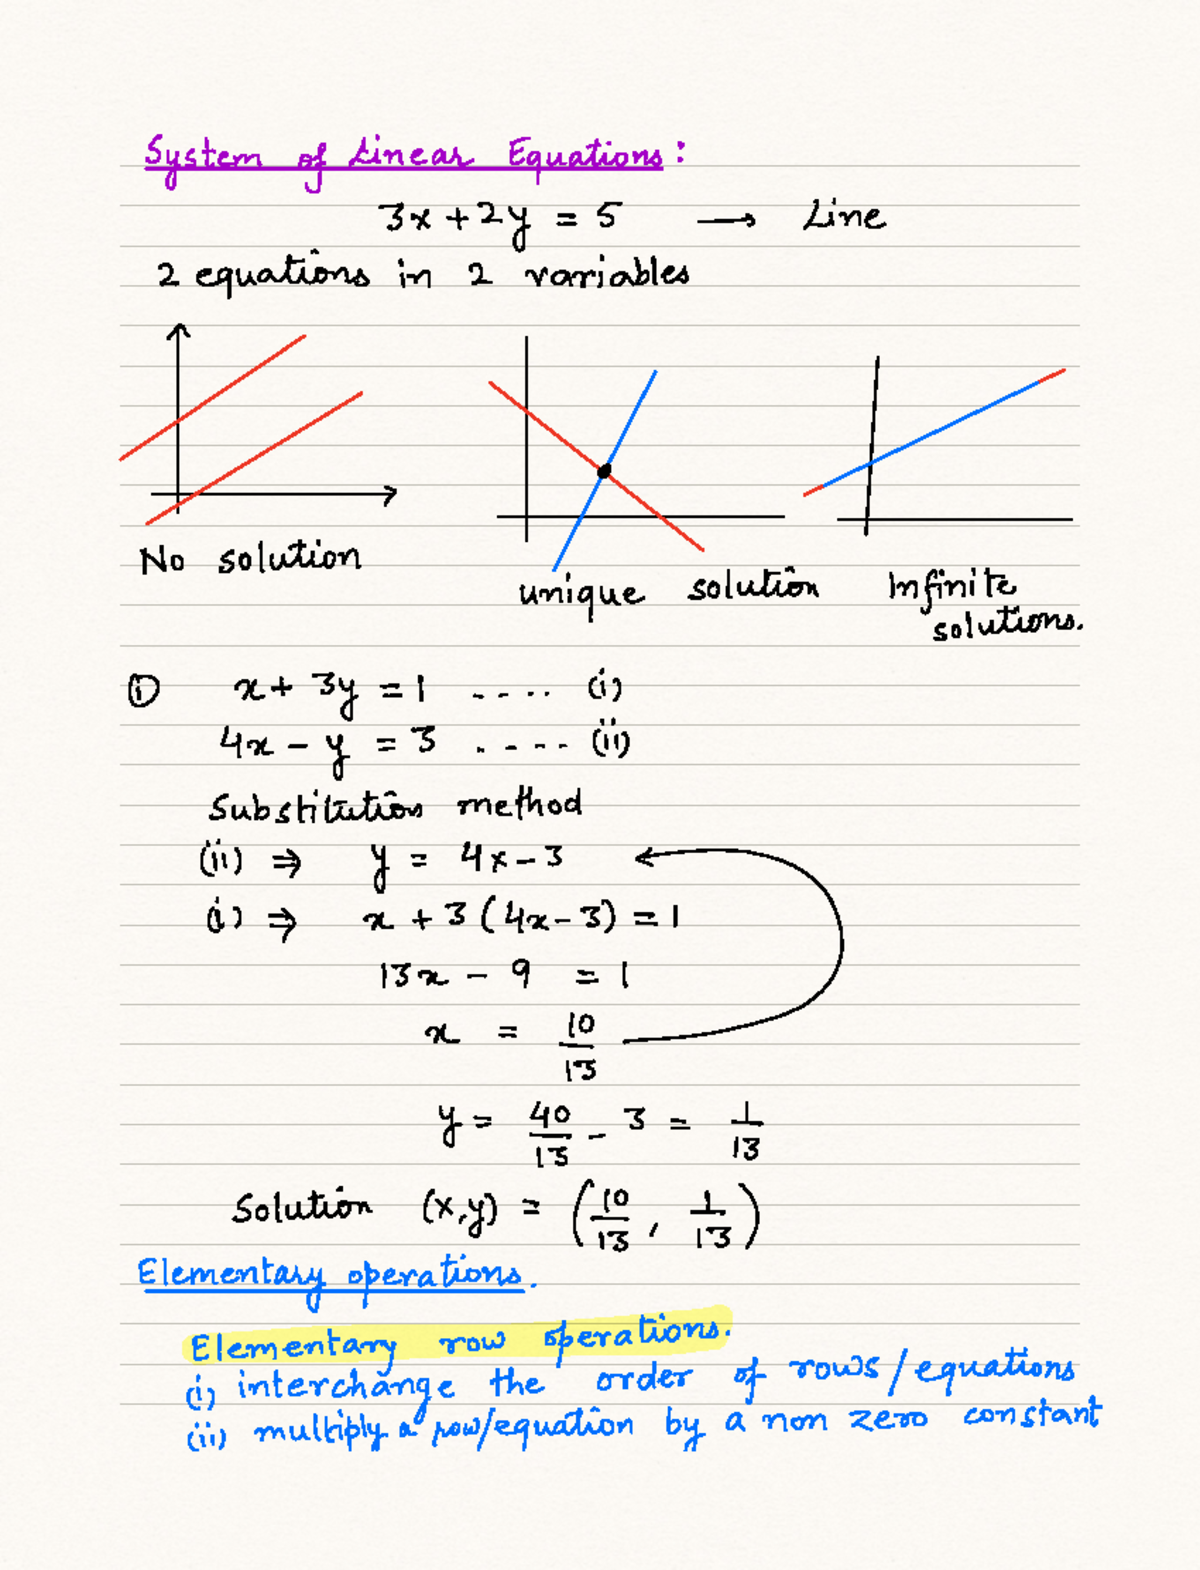 System of Linear Equations:
3x + 2y = 5 → Line
2 equations in 2 variables
No solution
unique solution
Infinite solutions.
① x + 3y = 1 .... (i)
4x - y = 3 ..... (ii)
Substitution method
(ii) ⇒ y = 4x - 3
(i) ⇒ x + 3 (4x - 3) = 1
13x - 9 = 1
x = 10/13
y = 40/13 - 3 = 1/13
Solution (x,y) = (10/13, 1/13)
Elementary operations.
Elementary row operations.
(i) interchange the order of rows/equations
(ii) multiply a row/equation by a non zero constant